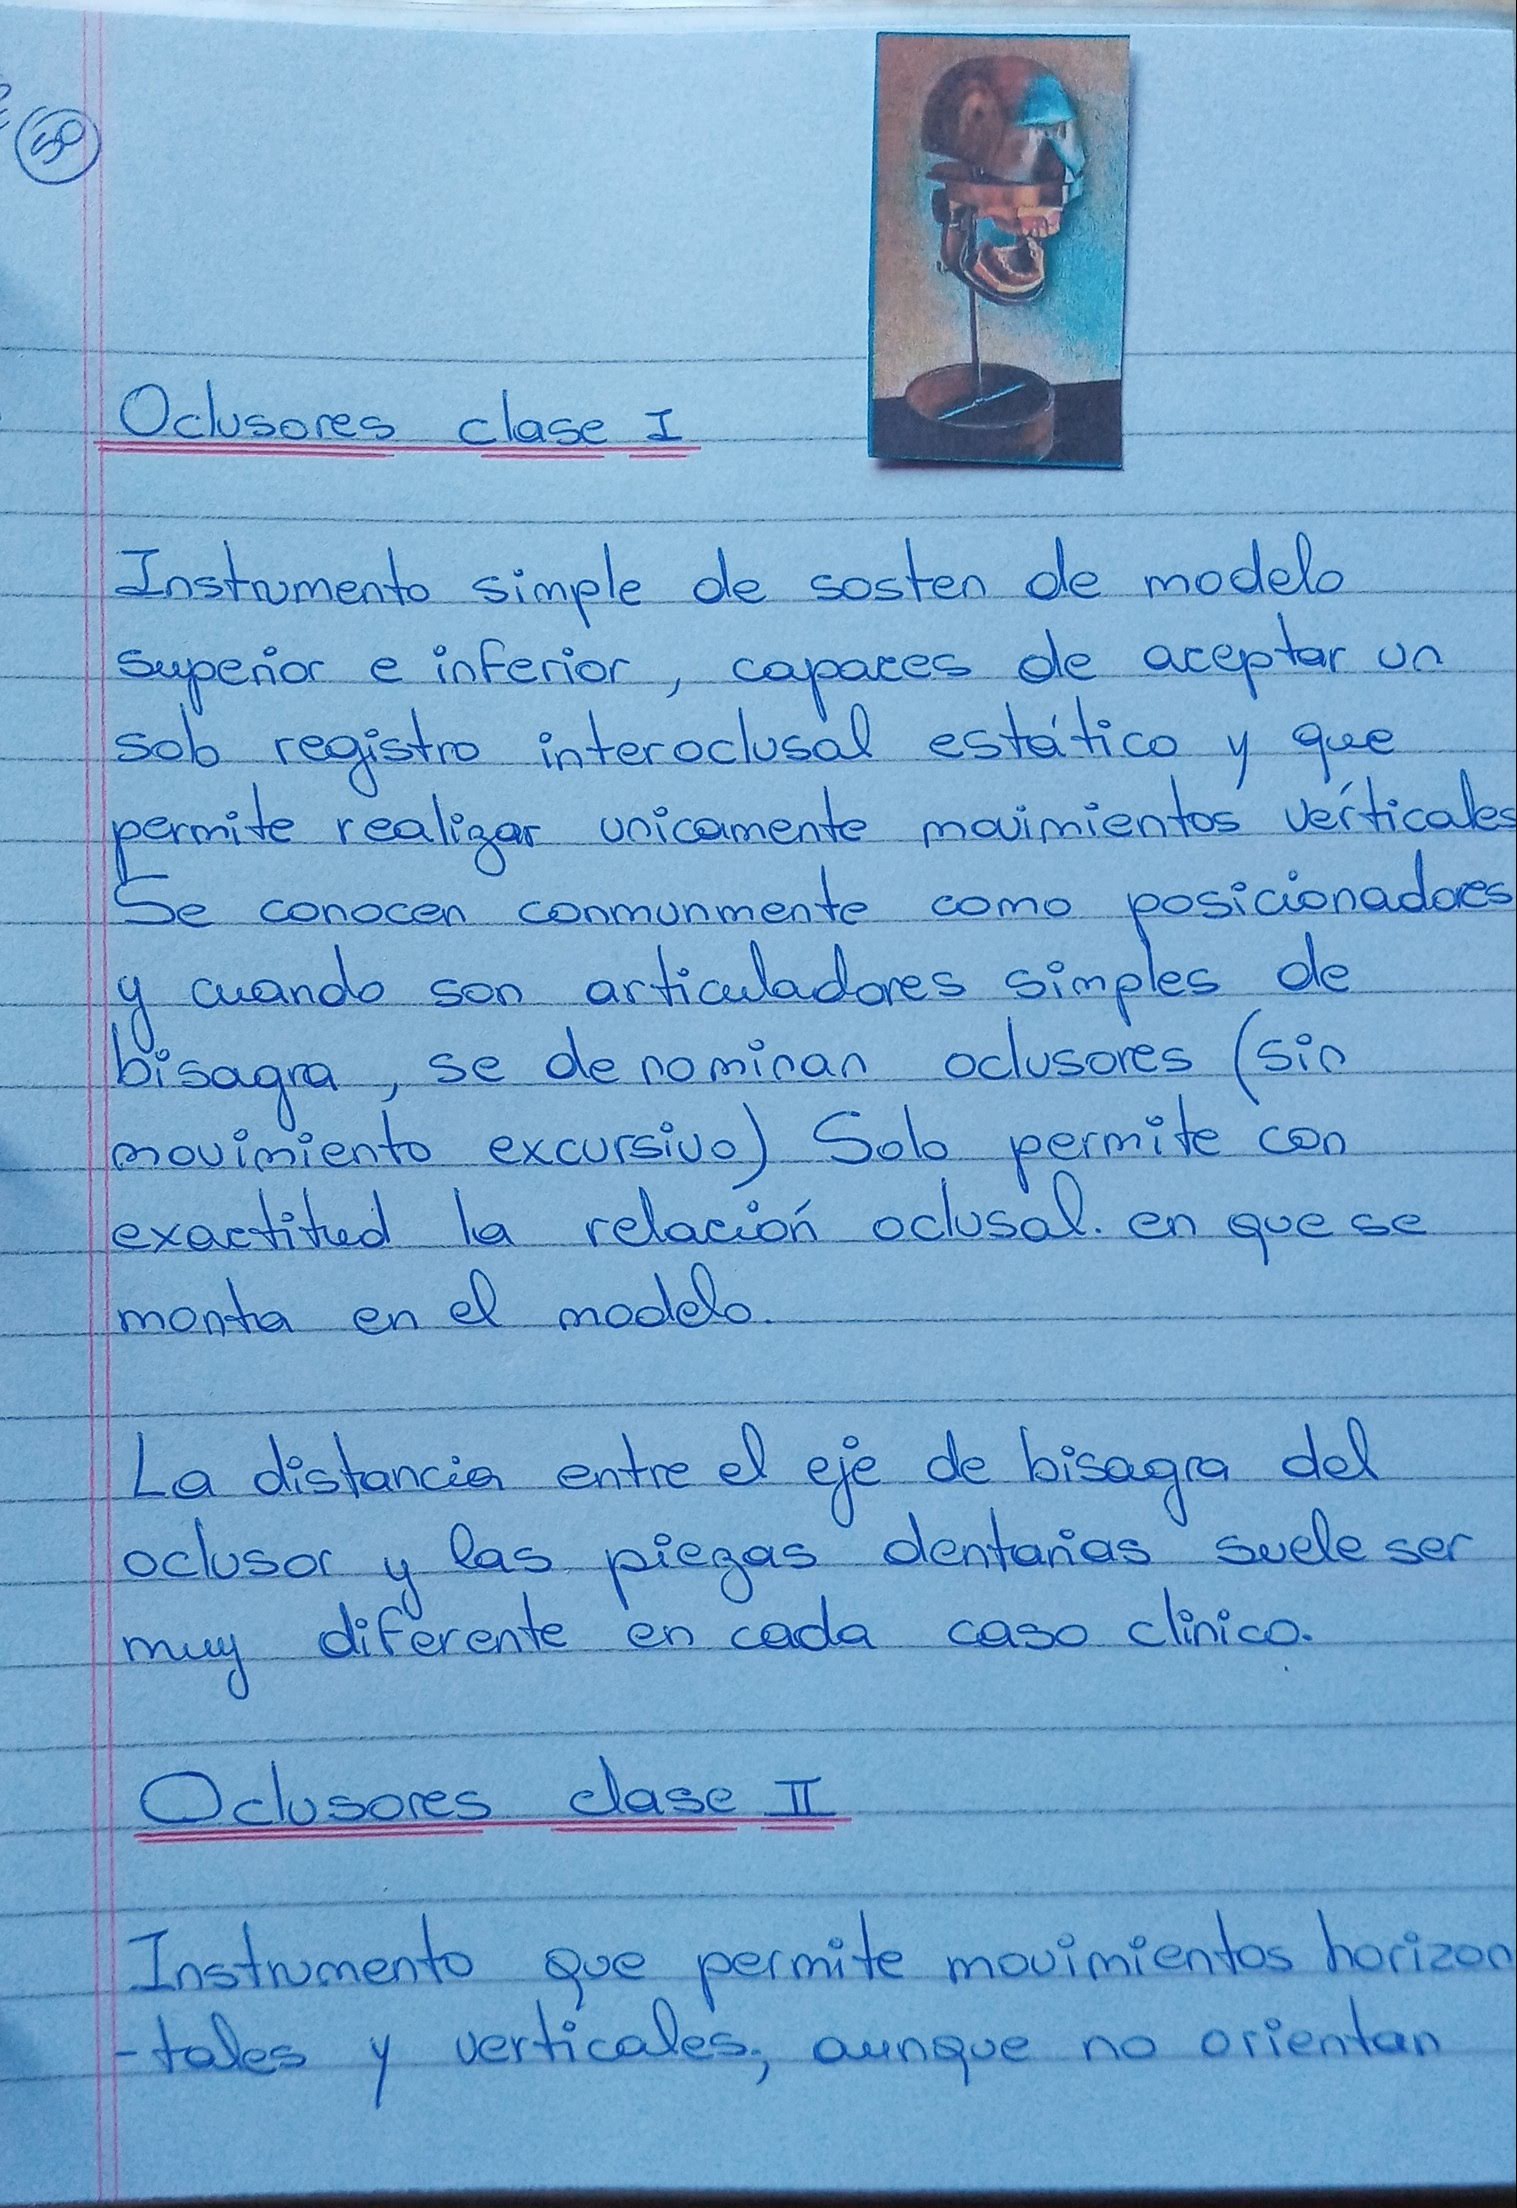 50
Oclusores clase I
Instrumento simple de sosten de modelo
superior e inferior, capaces de aceptar un
solo registro interoclusal estático y que
permite realizar unicamente movimientos verticales
Se conocen conmunmente como posicionadores
y cuando son articuladores simples de
bisagra, se denominan oclusores (sin
movimiento excursivo) Solo permite con
exactitud la relación oclusal. en que se
monta en el modelo.
La distancia entre el eje de bisagra del
oclusor y las piezas dentarias suele ser
muy diferente en cada caso clinico.
Oclusores clase II
Instrumento que permite movimientos horizon
-tales y verticales, aunque no orientan